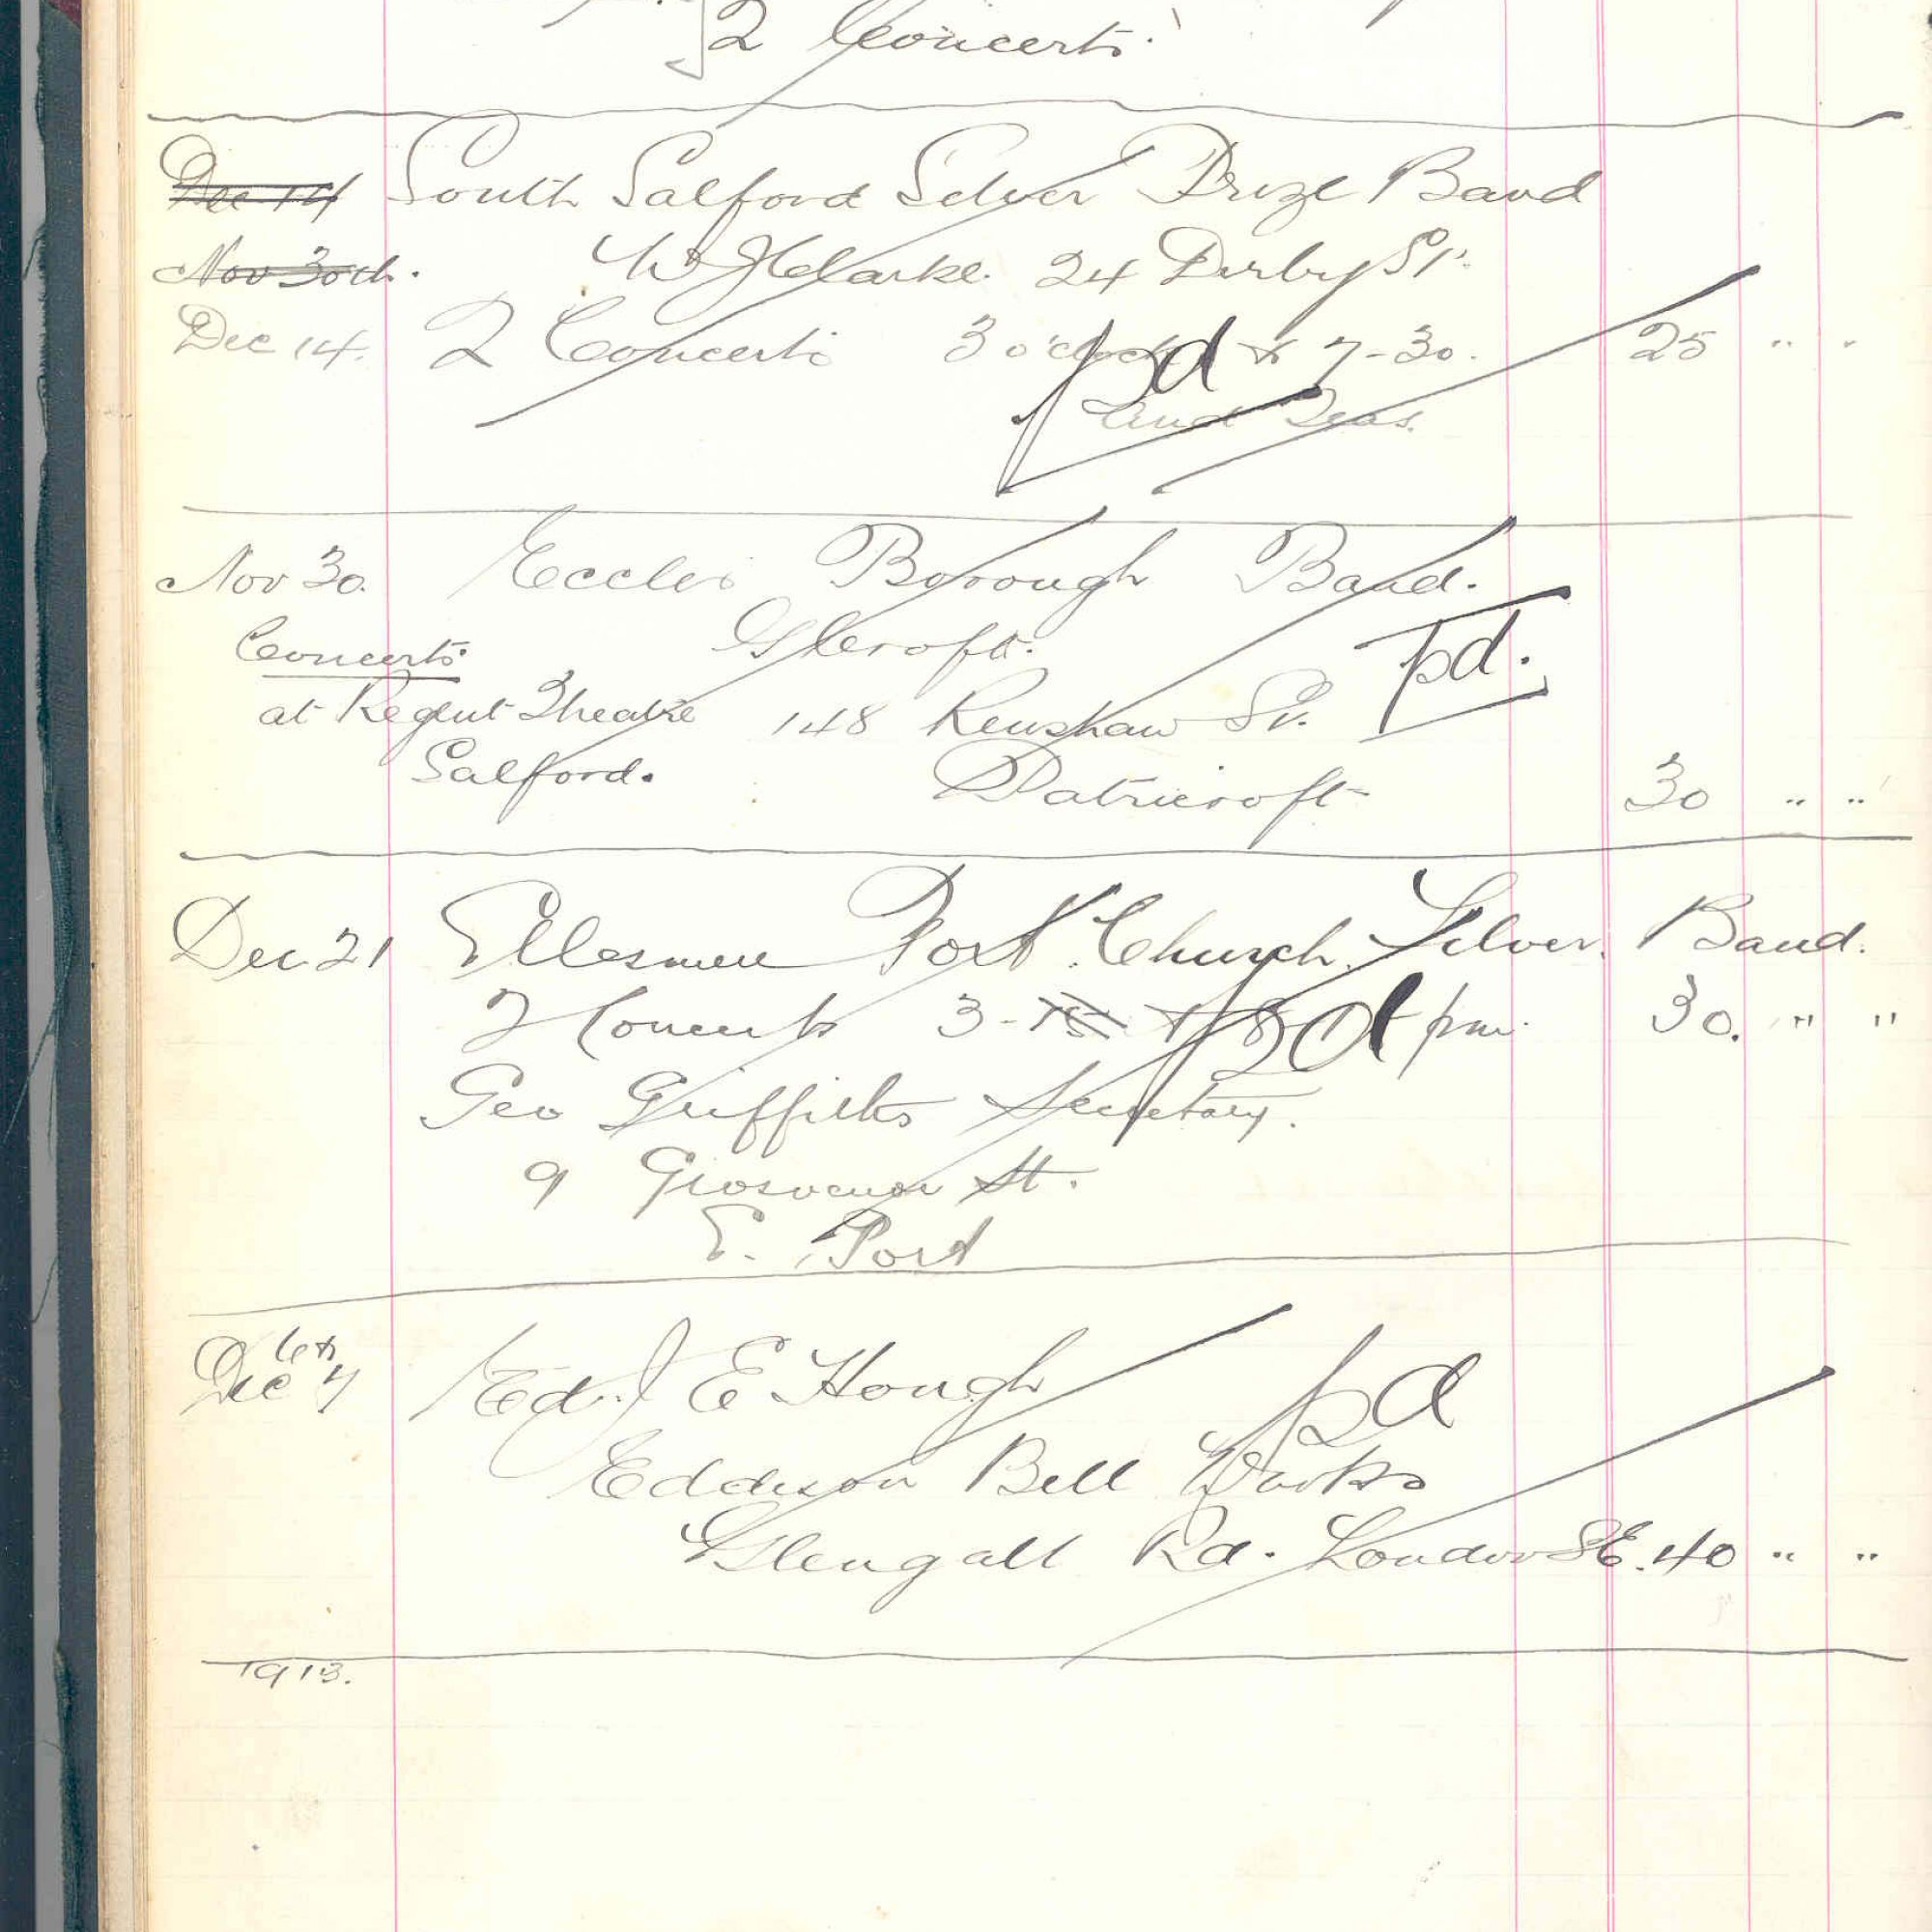 2 Concerts.
Dec 14 South Salford Silver Prize Band
Nov 30th. W J Clarke. 24 Derby St.
Dec 14. 2 Concerts 3 o'clock & 7-30. 25 " "
pd
and Teas.
Nov 30. Eccles Borough Band.
Concerts. G Croft. pd.
at Regent Theatre 148 Renshaw St.
Salford. Patricroft 30 " "
Dec 21 Ellesmere Port Church Silver. Band.
2 Concerts 3-15 & 8 pm. 30. " "
pd
Geo Griffiths Secretary.
9 Grosvenor St.
E. Port
Dec 6 & 7 Ed. J E Hough pd
Eddison Bell Works
Glengall Rd. London SE. 40 " "
1913.